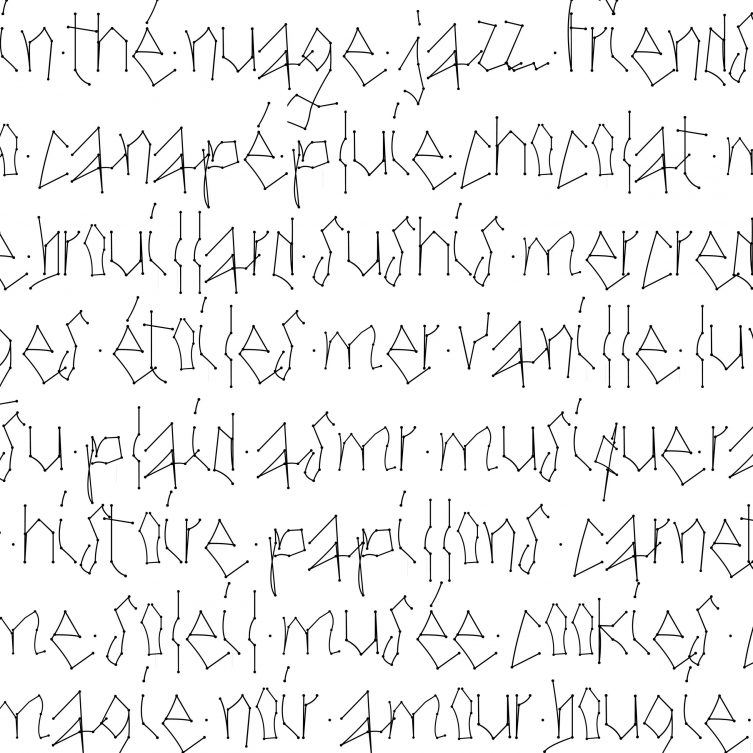 in·thé·nuage·jazz·friends
o·canapé·pluie·chocolat·n
e·brouillard·sushis·mercred
ges·étoiles·mer·vanille·lu
su·plaid·asmr·musique·ra
·histoire·papillons·carnet
me·soleil·musée·cookies·
magie·noir·amour·bougie·